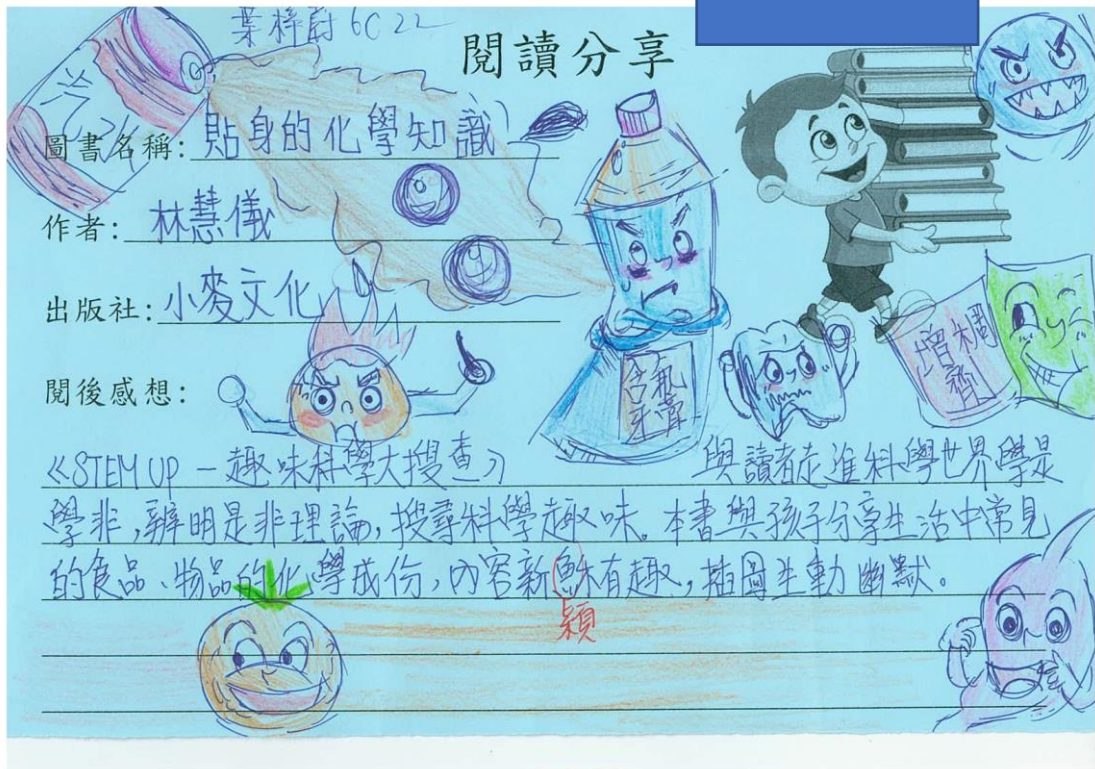 葉梓蔚 6C 22
閱讀分享
汽水
圖書名稱: 貼身的化學知識
作者: 林慧儀
出版社: 小麥文化
含氟
牙膏
增稠
劑
閱後感想:
《STEM UP - 趣味科學大搜查》 與讀者走進科學世界學是
學非,辨明是非理論,搜尋科學趣味。本書與孩子分享生活中常見
的食品、物品的化學成份,內容新穌有趣,插圖生動幽默。
穎